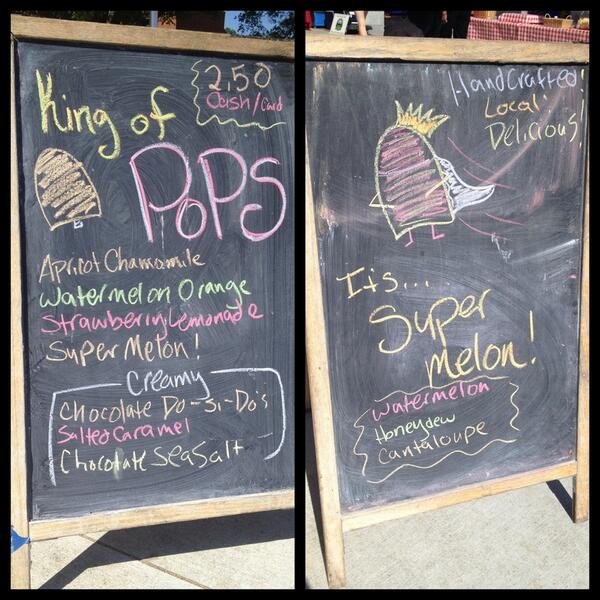 King of
2.50
Cash/Card
POPS
Apricot Chamomile
Watermelon Orange
Strawberry Lemonade
Super Melon!
Creamy
Chocolate Do-Si-Do's
Salted Caramel
Chocolate Sea Salt
HandCrafted
Local
Delicious!
It's...
Super
melon!
Watermelon
Honeydew
Cantaloupe